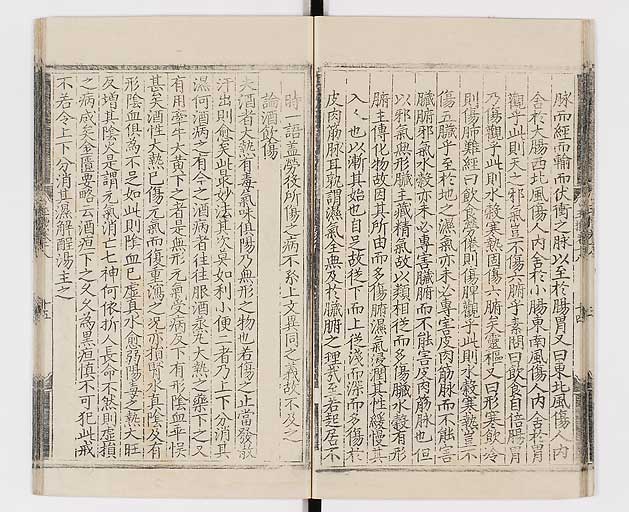 脉而經而輸而伏衝之脉以至於腸胃又曰東北風傷人内
舍於大腸西北風傷人内舍於小腸東南風傷人内舍於胃
觀乎此則天之邪氣豈不傷六腑乎素問曰飲食自倍腸胃
乃傷觀乎此則水穀寒熱固傷六腑矣靈樞又曰形寒飲冷
則傷肺難經曰飲食勞倦則傷脾觀乎此則水穀寒熱豈不
傷五臟乎至於地之濕氣亦未必專害皮肉筋脉而不能害
臟腑邪氣水穀亦未必專害臟腑而不能害皮肉筋脉也但
以邪氣無形臟主藏精氣故以類相從而多傷臟水穀有形
腑主傳化物故因其所由而多傷腑濕氣浸潤其性緩慢其
入人也以漸其始也自足故從下而上從淺而深而多傷於
皮肉筋脉耳孰謂濕氣全無及於臟腑之理哉至若起居不
時一語蓋勞役所傷之病不系上文異同之義故不及之
論酒飲傷
夫酒者大熱有毒氣味俱陽乃無形之物也若傷之止當發散
汗出則愈矣此最妙法其次莫如利小便二者乃上下分消其
濕何酒病之有今之酒病者往往服酒癥丸大熱之藥下之又
有用牽牛大黃下之者是無形元氣受病反下有形陰血乖悞
甚矣酒性大熱已傷元氣而復重瀉之况亦損腎水真陰及有
形陰血俱為不足如此則陰血愈虚真水愈弱陽毒之熱大旺
反增其陰火是謂元氣消亡七神何依折人長命不然則虚損
之病成矣金匱要略云酒疸下之久久為黑疸慎不可犯此戒
不若令上下分消其濕解酲湯主之